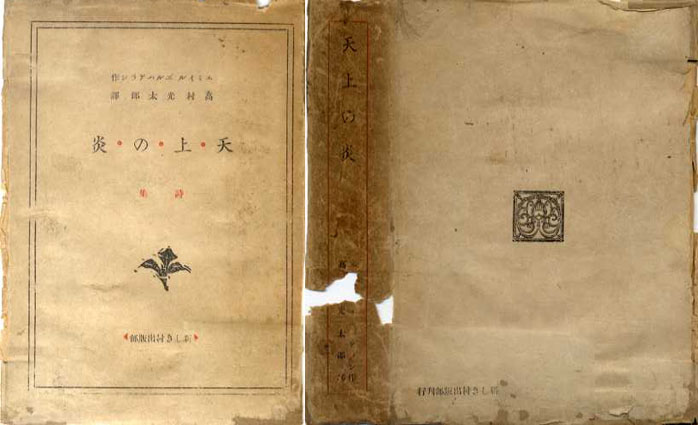 エミイル ヹルハアラン作
高村光太郎譯
天・上・の・炎
詩集
新しき村出版部
天上の炎
作
光太郎譯
新しき村出版部刊行